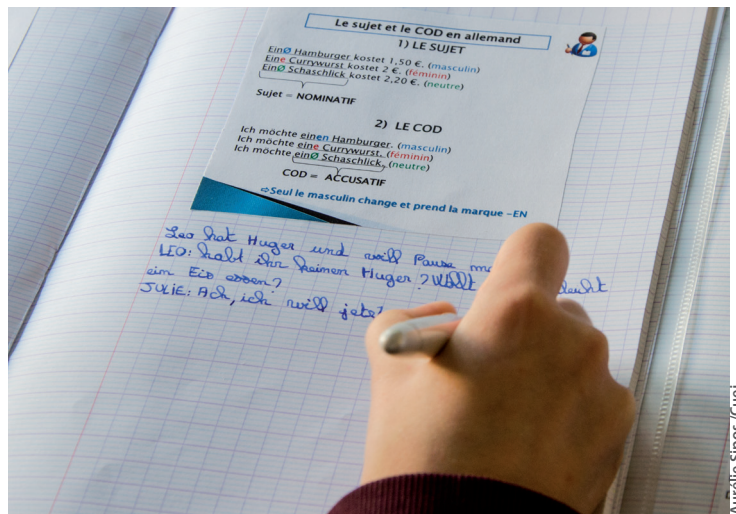 Le sujet et le COD en allemand
1) LE SUJET
EinØ Hamburger kostet 1,50 €. (masculin)
Eine Currywurst kostet 2 €. (féminin)
EinØ Schaschlick kostet 2,20 €. (neutre)
Sujet = NOMINATIF
2) LE COD
Ich möchte einen Hamburger. (masculin)
Ich möchte eine Currywurst. (féminin)
Ich möchte einØ Schaschlick. (neutre)
COD = ACCUSATIF
⇨Seul le masculin change et prend la marque -EN
Leo hat Huger und will Pause
LEO: habt ihr keinen Huger? Wollt
ein Eis essen?
JULIE: Ach, ich will
Aurélie Sipos /Cuej